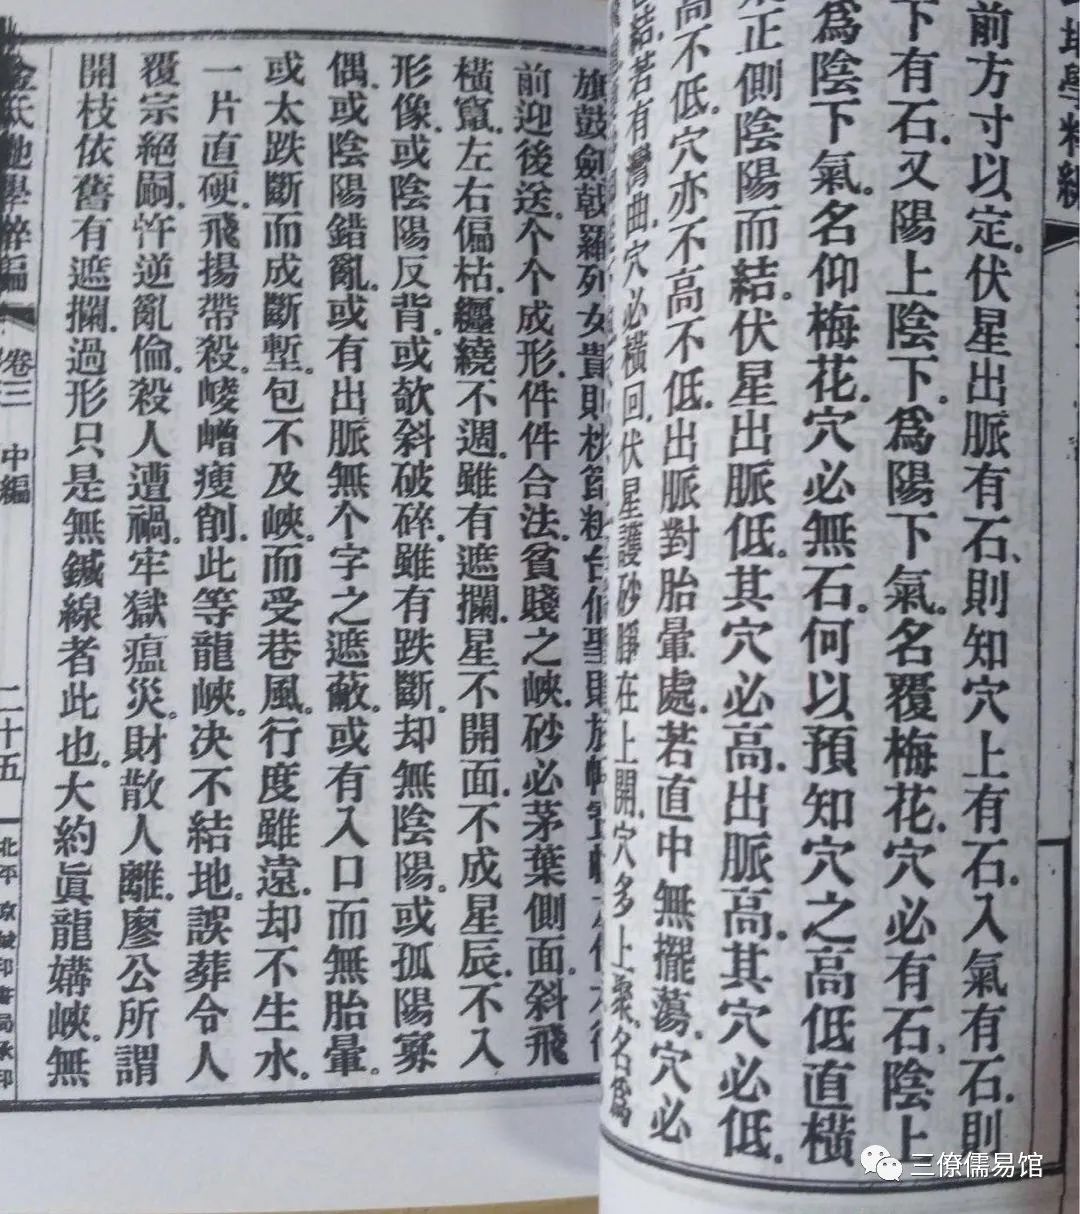 前方寸以定。伏星出脈有石、則知穴上有石。入氣有石。則
下有石。又陽上陰下。爲陽下氣。名覆梅花。穴必有石。陰上
爲陰下氣。名仰梅花。穴必無石。何以預知穴之高低直橫
正側陰陽而結。伏星出脈低。其穴必高。出脈高。其穴必低。
高不低。穴亦不高不低。出脈對胎暈處。若直中無擺蕩。穴必
結。若有灣曲。穴必橫回。伏星護砂睜在上開。穴多上聚。名爲
旗鼓劍戟羅列女貴則
前迎後送。个个成形。件件合法。貧賤之峽。砂必茅葉側面。斜飛
橫竄。左右偏枯。纏繞不週。雖有遮攔。星不開面。不成星辰。不入
形像。或陰陽反背。或欹斜破碎。雖有跌斷。却無陰陽。或孤陽寡
偶。或陰陽錯亂。或有出脈無个字之遮蔽。或有入口而無胎暈。
或太跌斷而成斷塹。包不及峽。而受巷風。行度雖遠。却不生水。
一片直硬。飛揚帶殺。崚嶒瘦削。此等龍峽。决不結地。誤葬令人
覆宗絕嗣。忤逆亂倫。殺人遭禍。牢獄瘟災。財散人離。廖公所謂
開枝依舊有遮攔。過形只是無鍼線者此也。大約眞龍媾峽。無
卷三 中編
二十五
北平京城印書局承印
三僚儒易馆